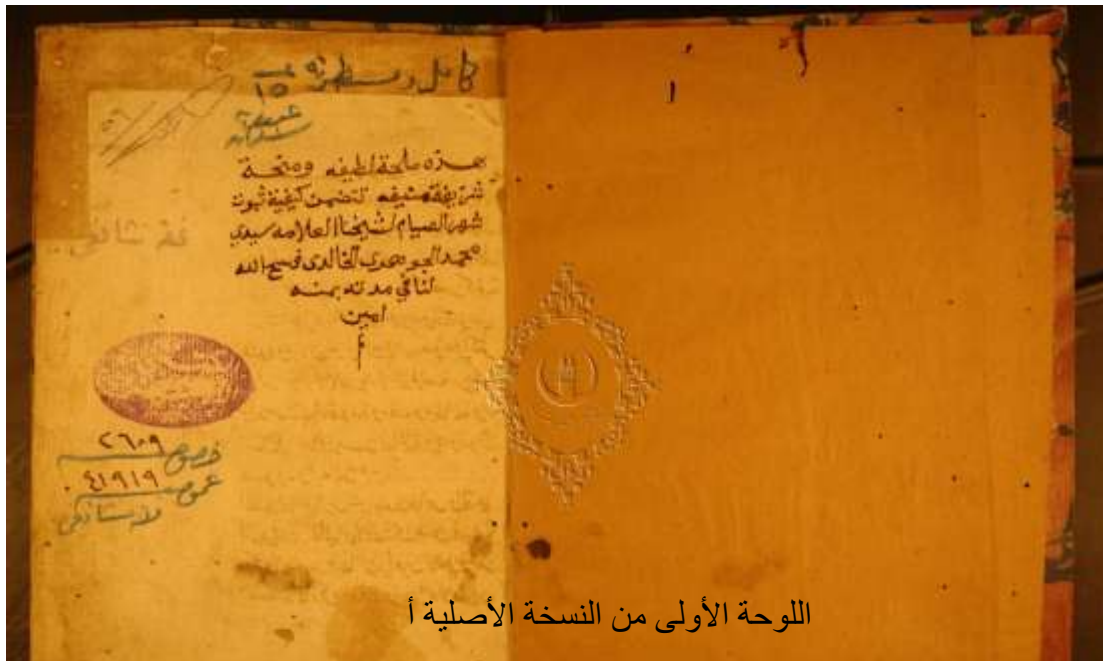 كامل ومسطرته
١٥
هذه ملحة لطيفه ومنحة
شريفة منيفه تتضمن كيفية ثبوت
شهر الصيام لشيخنا العلامه سيدي
محمد الجوهري الخالدي فسح الله
لنا في مدته بمنه
امين
فقه شافعي
خصوص ٢٦٠٩
عموم ٤١٩١٩
اللوحة الأولى من النسخة الأصلية أ